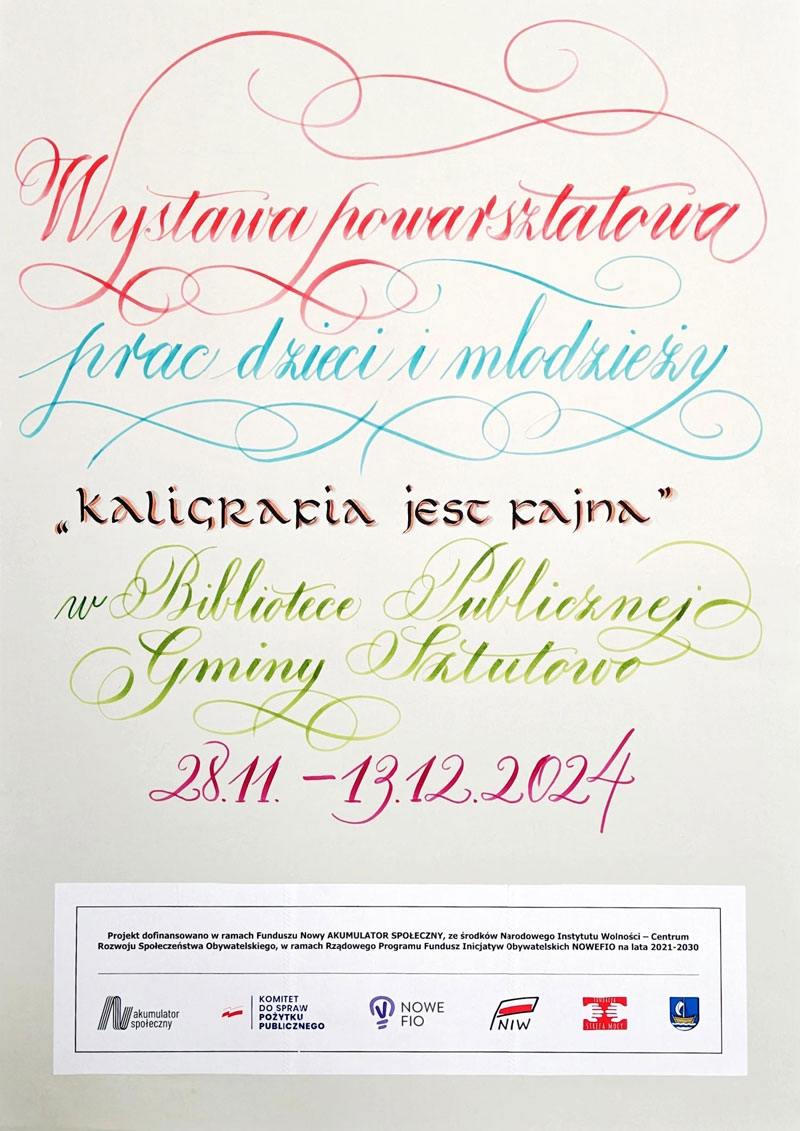 Wystawa powarsztatowa
prac dzieci i młodzieży
„Kaligrafia jest fajna”
w Bibliotece Publicznej
Gminy Sztutowo
28.11. – 13.12.2024
Projekt dofinansowano w ramach Funduszu Nowy AKUMULATOR SPOŁECZNY, ze środków Narodowego Instytutu Wolności – Centrum
Rozwoju Społeczeństwa Obywatelskiego, w ramach Rządowego Programu Fundusz Inicjatyw Obywatelskich NOWEFIO na lata 2021-2030
akumulator
społeczny
KOMITET
DO SPRAW
POŻYTKU
PUBLICZNEGO
NOWE
FIO
NIW
FUNDACJA
STREFA MOCY